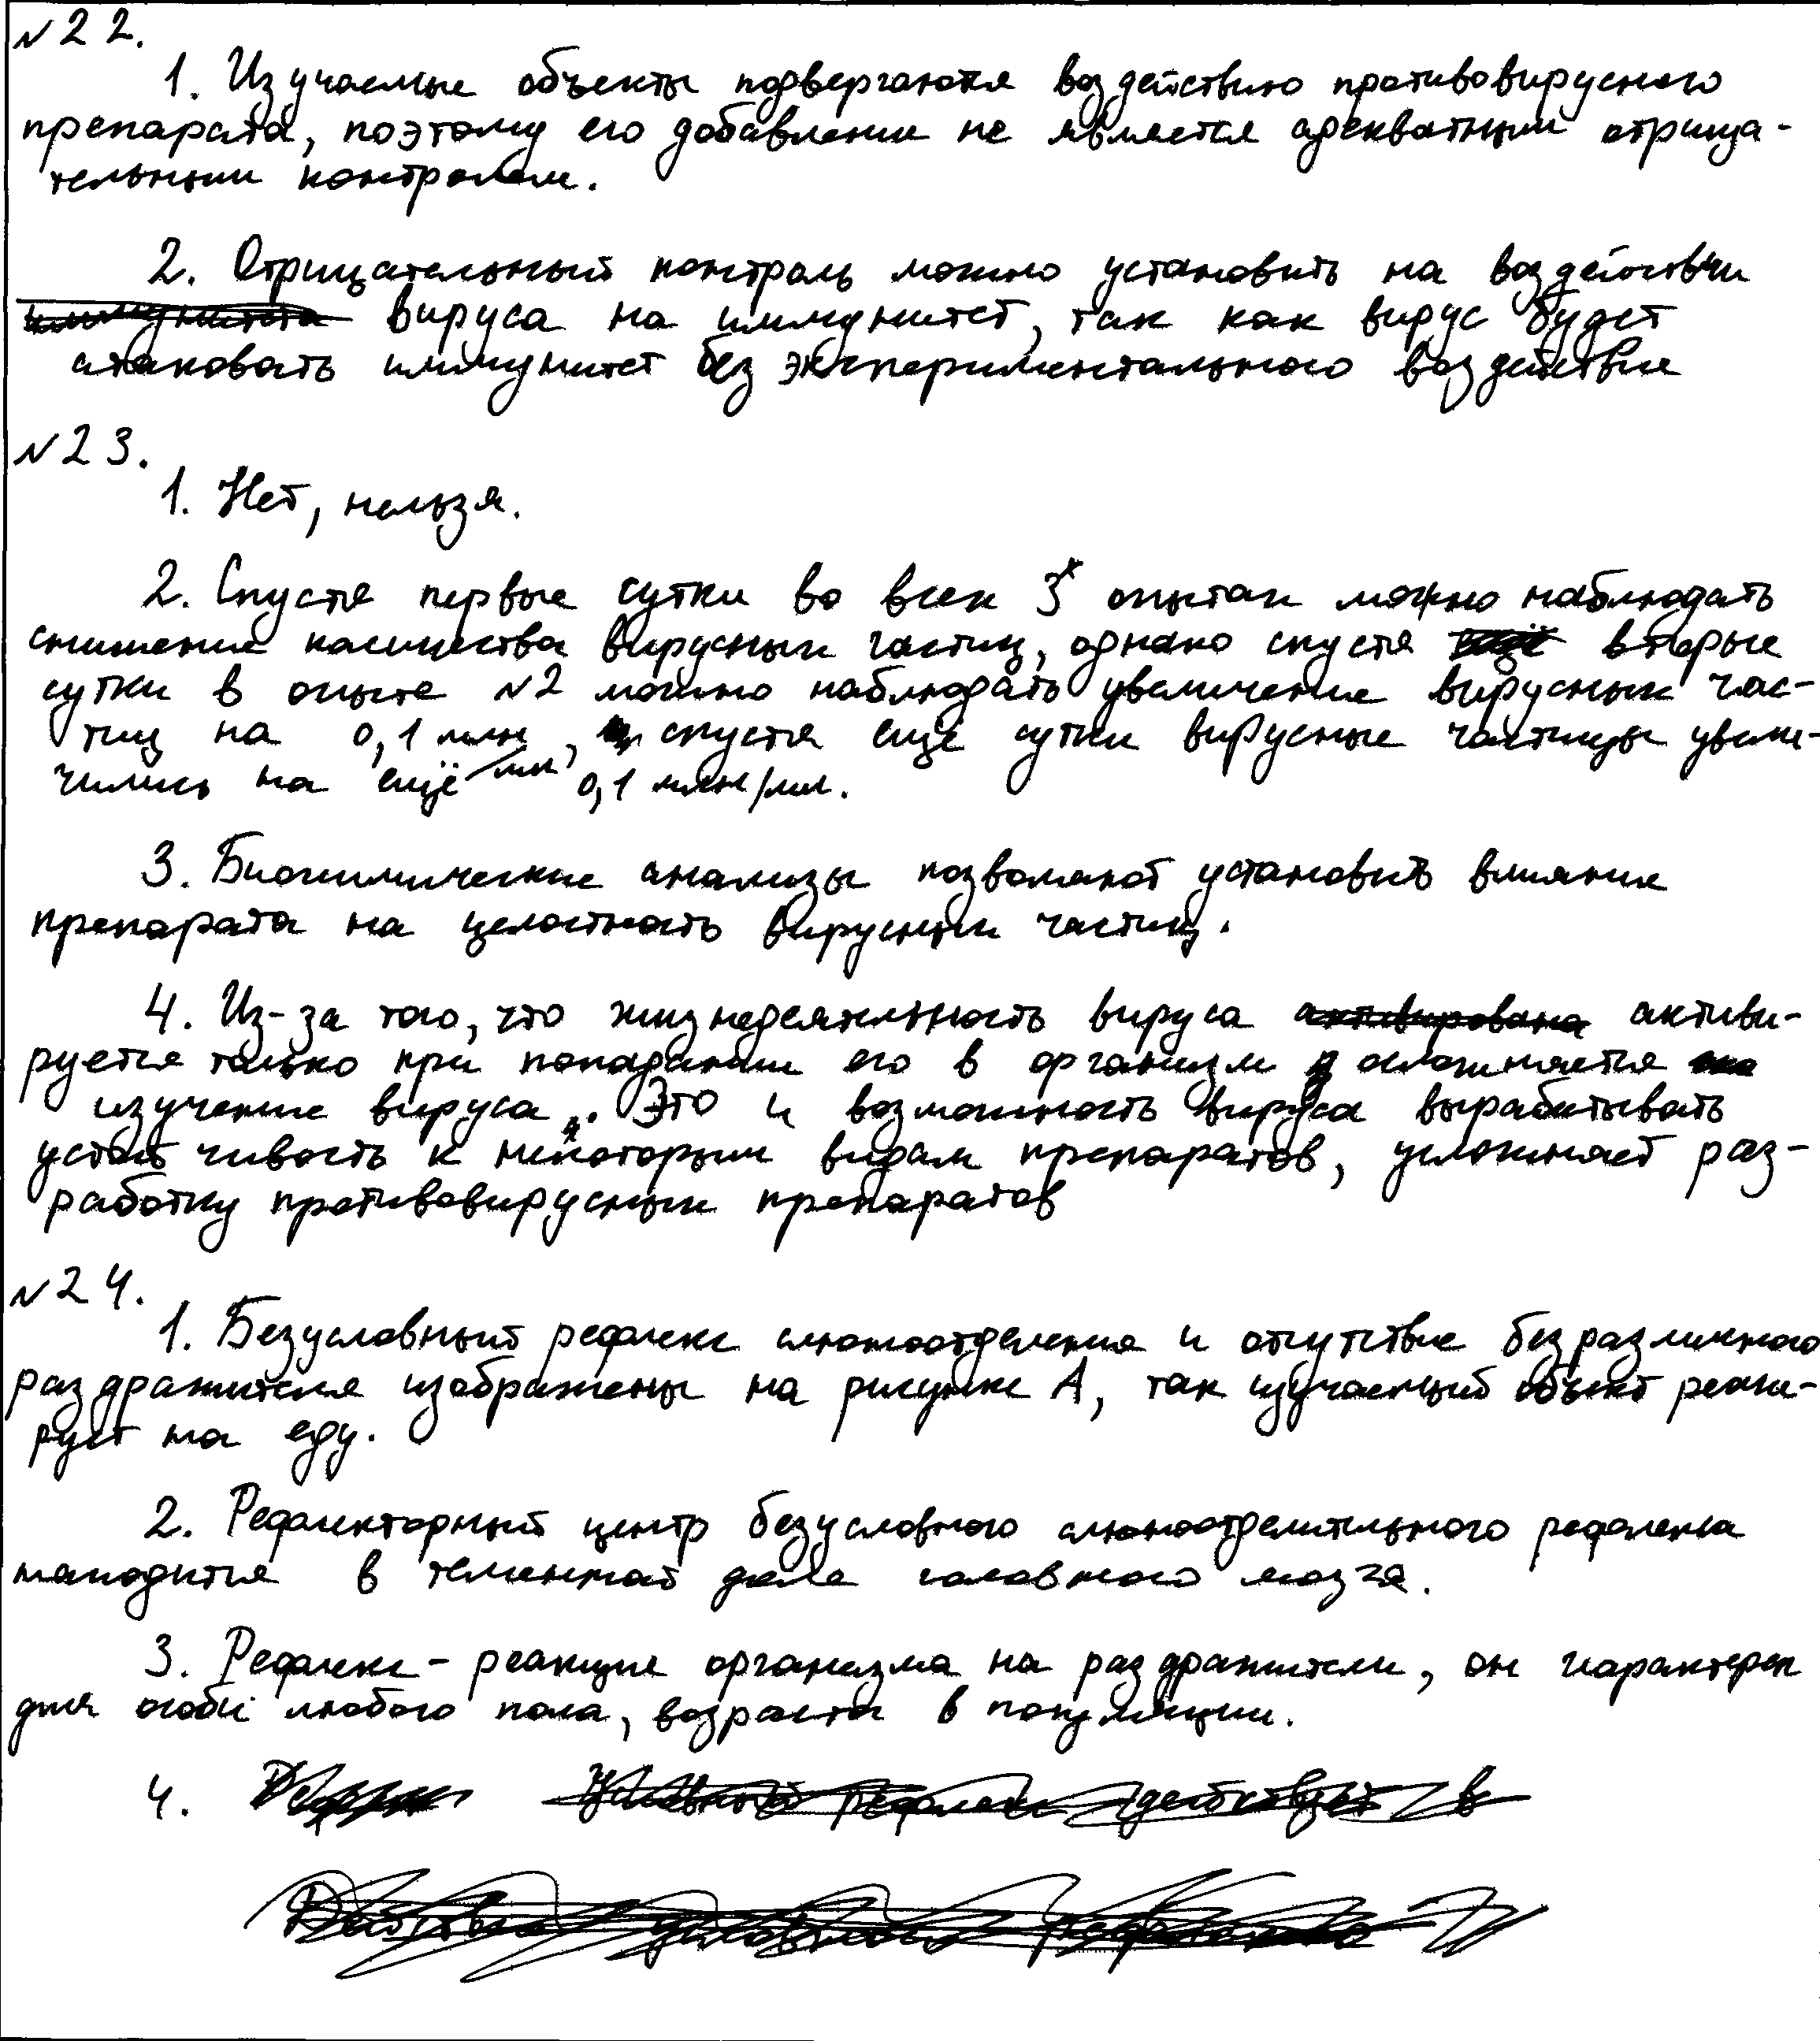 №22.
1. Изучаемые объекты подвергаются воздействию противовирусного
препарата, поэтому его добавление не является адекватным отрица-
тельным контролем.
2. Отрицательный контроль можно установить на воздействии
иммунитета вируса на иммунитет, так как вирус будет
атаковать иммунитет без экспериментального воздействия
№23.
1. Нет, нельзя.
2. Спустя первые сутки во всех 3х опытах можно наблюдать
снижение количества вирусных частиц, однако спустя вторые
сутки в опыте №2 можно наблюдать увеличение вирусных час-
тиц на 0,1 млн/мл, спустя ещё сутки вирусные частицы увели-
чились на ещё 0,1 млн/мл.
3. Биохимические анализы позволяют установить влияние
препарата на целостность вирусных частиц.
4. Из-за того, что жизнедеятельность вируса активирована активи-
руется только при попадании его в организм осложняется
изучение вируса. Это и возможность вируса вырабатывать
устойчивость к некоторым видам препаратов, усложняет раз-
работку противовирусных препаратов
№24.
1. Безусловный рефлекс слюноотделения и отсутствие безразличного
раздражителя изображены на рисунке А, так изучаемый объект реаги-
рует на еду.
2. Рефлекторный центр безусловного слюноотделительного рефлекса
находится в теменной доле головного мозга.
3. Рефлекс - реакция организма на раздражители, он характерен
для особи любого пола, возраста в популяции.
4. Условный рефлекс действует в